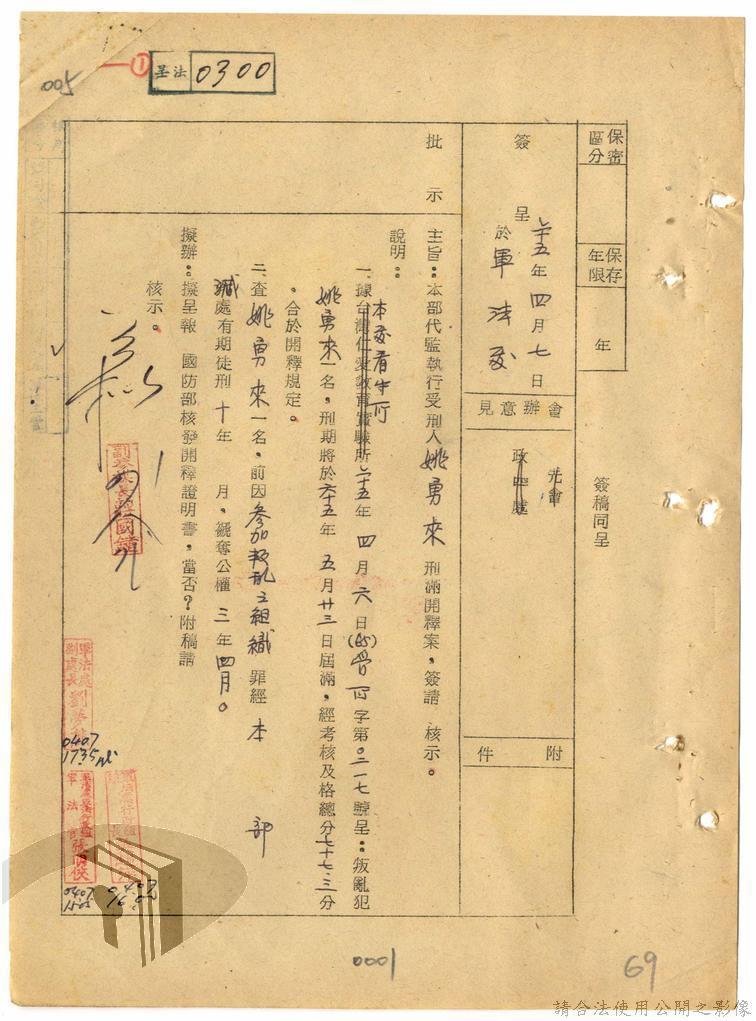 005
①
呈法 0300
保密區分
保存年限
年
簽稿同呈
簽呈 六十五年四月七日 於軍法處
會辦意見
附件
批示
主旨：本部代監執行受刑人姚勇來刑滿開釋案，簽請 核示。
說明：
一、據台灣仁愛教育實驗所本處看守所六十五年四月六日(65)字第0二一七號呈：叛亂犯
姚勇來一名，刑期將於六十五年五月廿三日屆滿，經考核及格總分七十七·三分
，合於開釋規定。
二、查姚勇來一名，前因參加叛亂之組織罪經本部
減處有期徒刑十年 月，褫奪公權三年四月。
擬辦：擬呈報 國防部核發開釋證明書，當否？附稿請
核示。
軍法處副處長劉
0407
1735
軍法官張
0407
0407
0001
69
請合法使用公開之影像